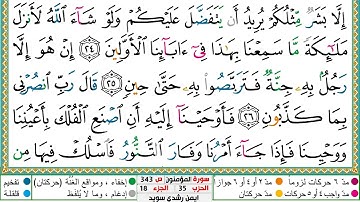 إِلَّا بَشَرٌ مِّثْلُكُمْ يُرِيدُ أَن يَتَفَضَّلَ عَلَيْكُمْ وَلَوْ شَآءَ ٱللَّهُ لَأَنزَلَ
مَلَٰٓئِكَةً مَّا سَمِعْنَا بِهَٰذَا فِىٓ ءَابَآئِنَا ٱلْأَوَّلِينَ ٢٤ إِنْ هُوَ إِلَّا
رَجُلٌۢ بِهِۦ جِنَّةٌ فَتَرَبَّصُوا۟ بِهِۦ حَتَّىٰ حِينٍ ٢٥ قَالَ رَبِّ ٱنصُرْنِى
بِمَا كَذَّبُونِ ٢٦ فَأَوْحَيْنَآ إِلَيْهِ أَنِ ٱصْنَعِ ٱلْفُلْكَ بِأَعْيُنِنَا
وَوَحْيِنَا فَإِذَا جَآءَ أَمْرُنَا وَفَارَ ٱلتَّنُّورُ فَٱسْلُكْ فِيهَا مِن
مدّ ٦ حركات لزوماً مدّ ٢ أو ٤ أو ٦ جوازاً إخفاء، ومواقع الغُنَّة (حركتان) تفخيم
مدّ واجب ٤ أو ٥ حركات مدّ حركتان إدغام، وما لا يُلفَظ قلقلة
سورة المؤمنون ص 343
الحزب 35 الجزء 18
أيمن رشدي سويد